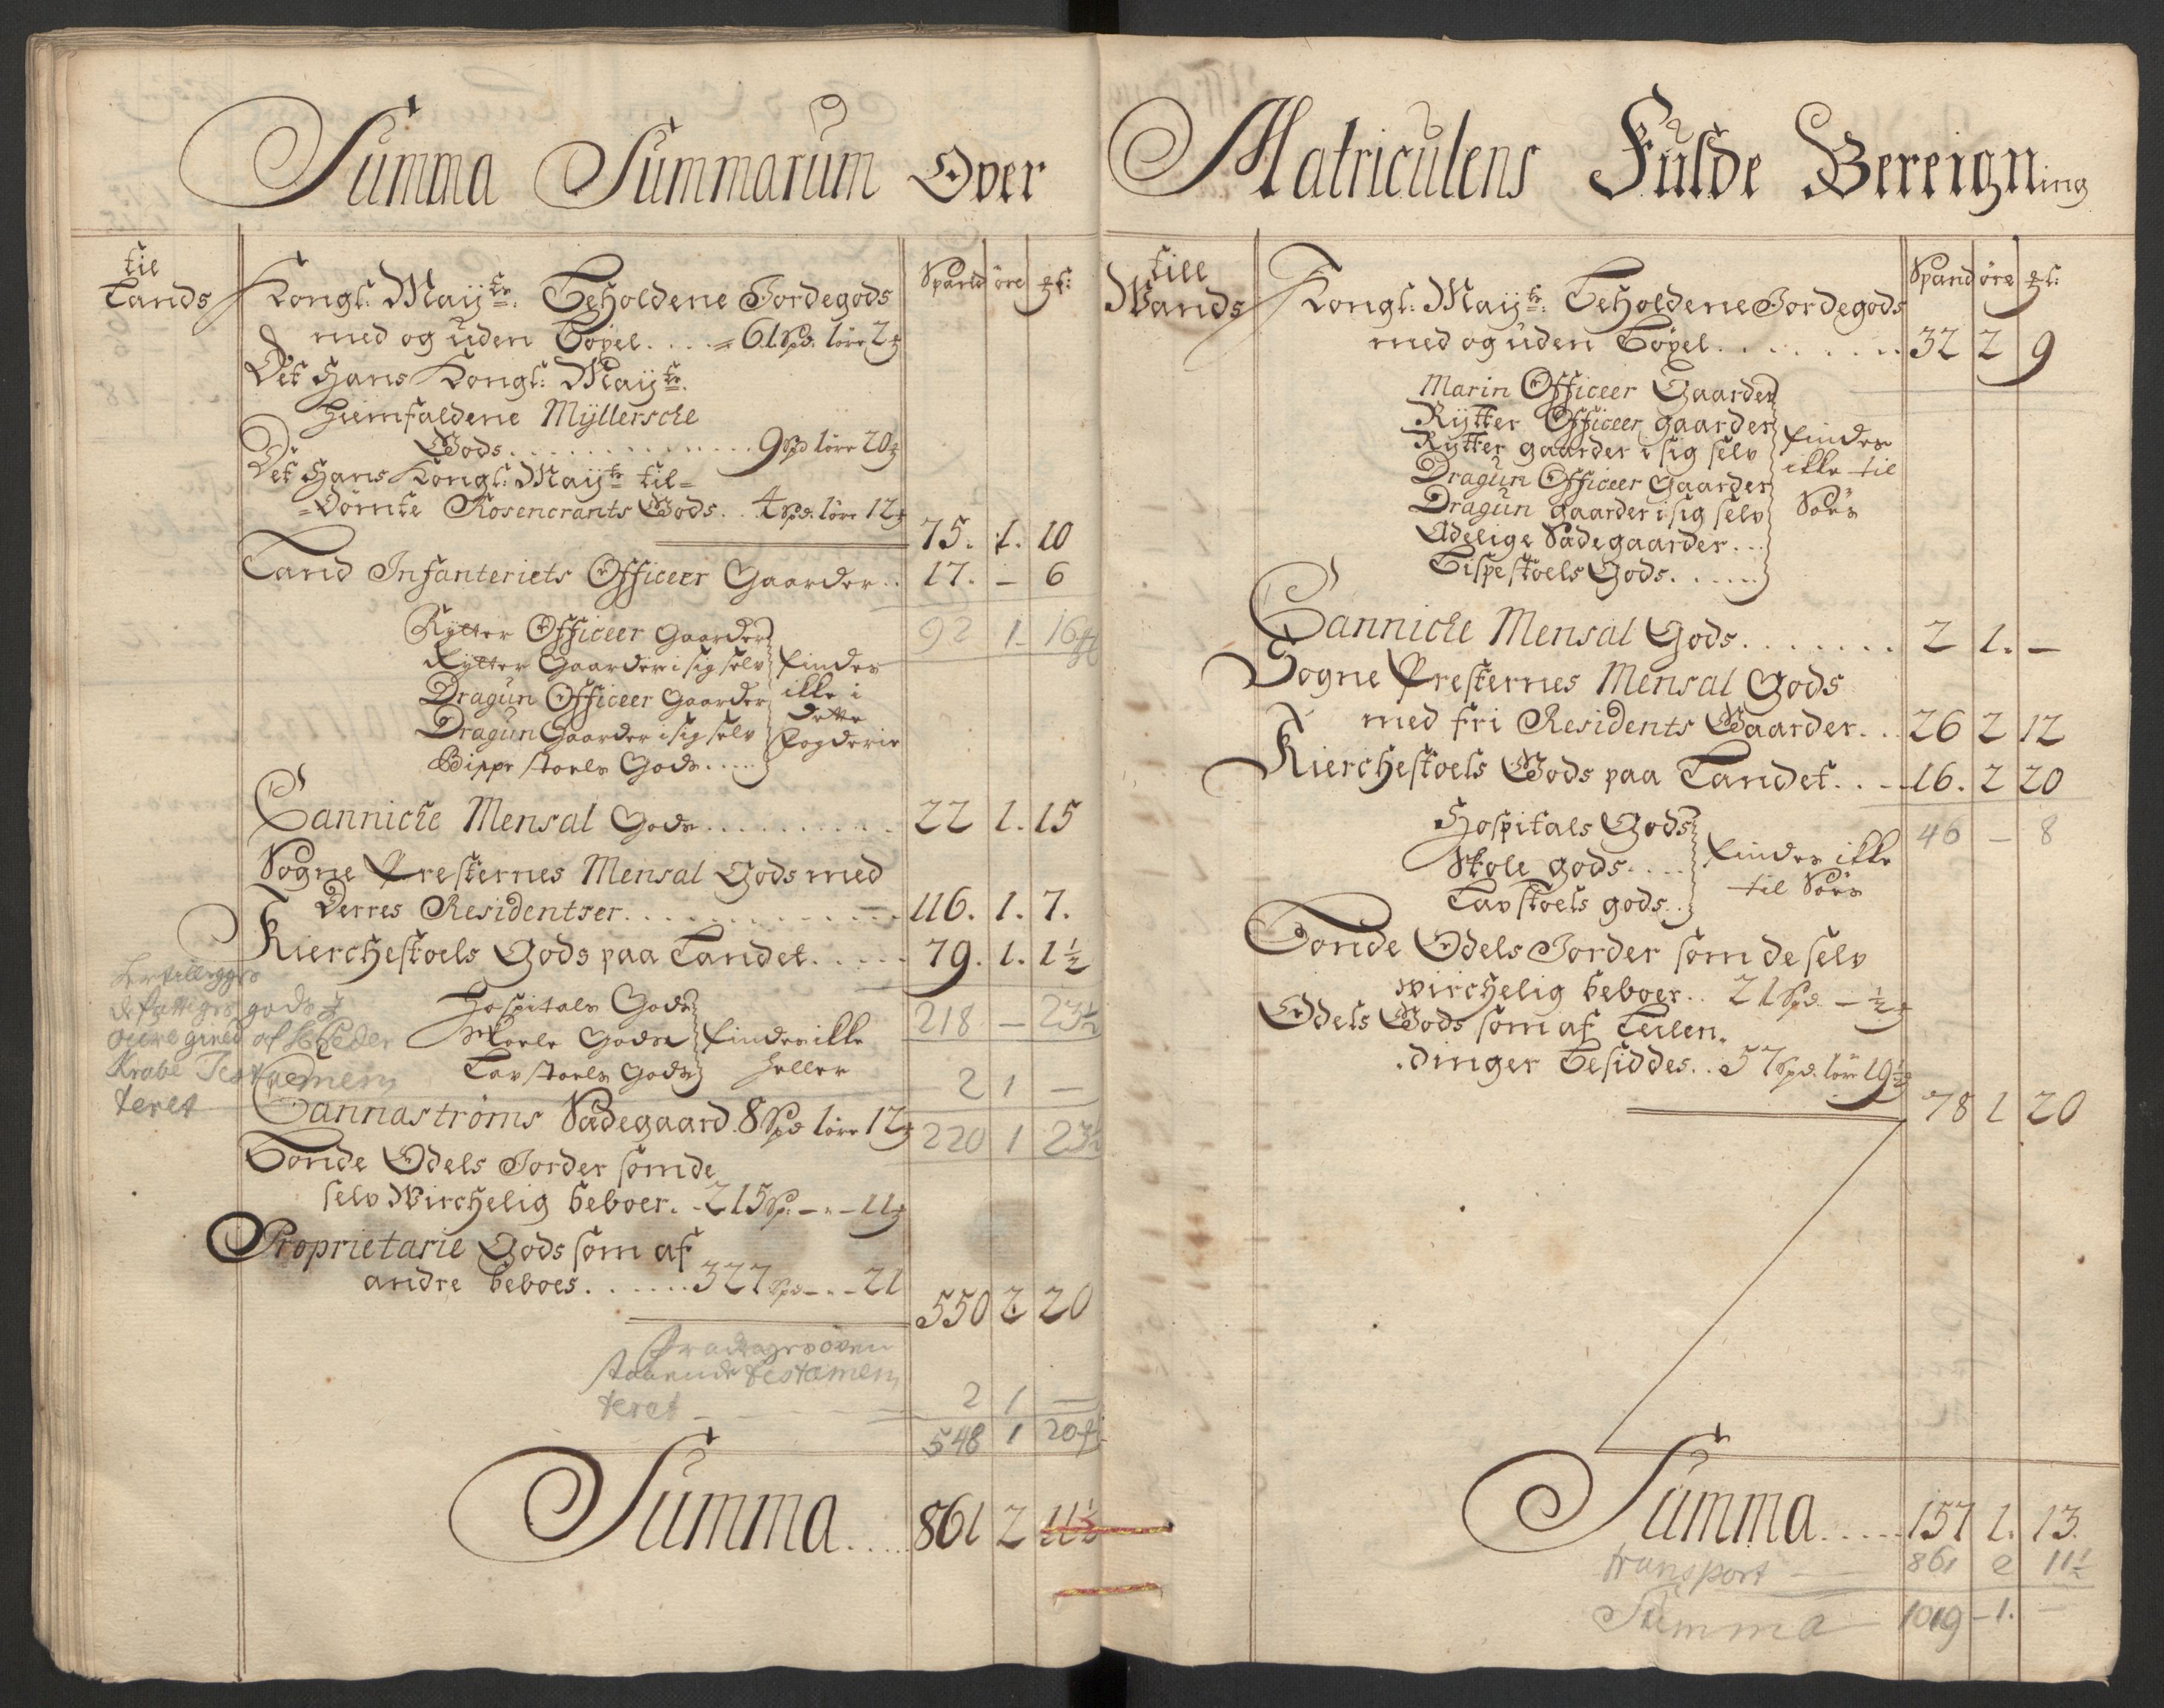 Summa Summarum Over
til
Lands
Spand öre
Kongl: Mayts. Beholdene Jordegods
med og uden Böxel.... 61 Spd. 1 öre 2
Det Hans Kongl: Mayts.
Hiemfaldene Mÿllersche
Gods............. 9 Spd 1 öre 20
Det Hans Kongl: Mayts til=
=Dömte Rosencrants Gods.. 4 Spd. 1 öre 12
75. 1. 10
Land Infanteriets Officeer Gaarder.. 17. – 6
92 1 – 16
Rytter Officeer Gaarder
Rytter Gaarder i sig selv
Dragun Officeer Gaarder
Dragun Gaarder i sig selv
Bispe stoels Gods.....
findes
ikke i
dette
fogderie
Cannicke Mensal Gods.......... 22 1. 15
Sogne Presternes Mensal Gods med
Derres Residentser............. 116. 1. 7.
Kierchestoels Gods paa Landet..... 79. 1. 1½
218 – 23½
Her tillegges
de fattiges gods
Krabe Testemen
teret
Hospitals Gods
Skoele Gods
Lavstoels Gods
findes ikke
heller
2 1 –
Cannaströms Sædegaard. 8 Spd 1 öre 12
220 1 23½
Bonde Odels Jorder som de
selv Wirchelig beboer. - 215 Sp. – . – 11
Proprietarie Gods som af
andre beboes....... 327 Spd – . – 21
550 2 20
Fradrages oven
staaende testemen
teret – 2 1 –
548 1 20
Summa..... 861 2 11½
Matriculens Fulde Bereigning
till
Wands
Spand öre
Kongl: Mayts: Beholdene Jordegods
med og uden Böxel......... 32 2 9
Marin Officeer Gaarder
Rytter Officeer gaarder
Rytter gaarder i sig selv
Dragun Officeer Gaarder
Dragun gaarder i sig selv
Adelige Sædegaarder...
Bispestoels Gods......
findes
ikke til
Söes
Cannicke Mensal Gods........ 2 1. –
Sogne Presternes Mensal Gods
med fri Residents Gaarder... 26 2 12
Kierchestoels Gods paa Landet... 16. 2 20
46 – 8
Hospitals Gods
Skole gods....
Lavstoels gods..
findes ikke
til Söes
Bonde Odels Jorder som de selv
wirchelig beboer.. 21 Spd. – ½
Odels Gods som af Leilen=
dinger besiddes.. 57 Spd. 1 öre 19½
78 1 20
Summa..... 157 1. 13.
transport – 861 2 11½
Summa 1019 – 1. –